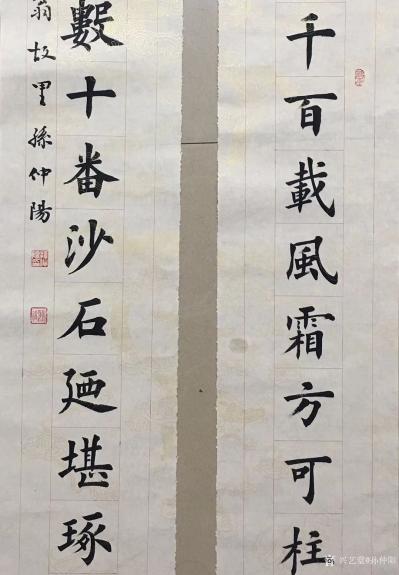 千百載風霜方可柱
數十番沙石廼堪琢
翁故里孫仲陽
兴艺堂@孙仲阳